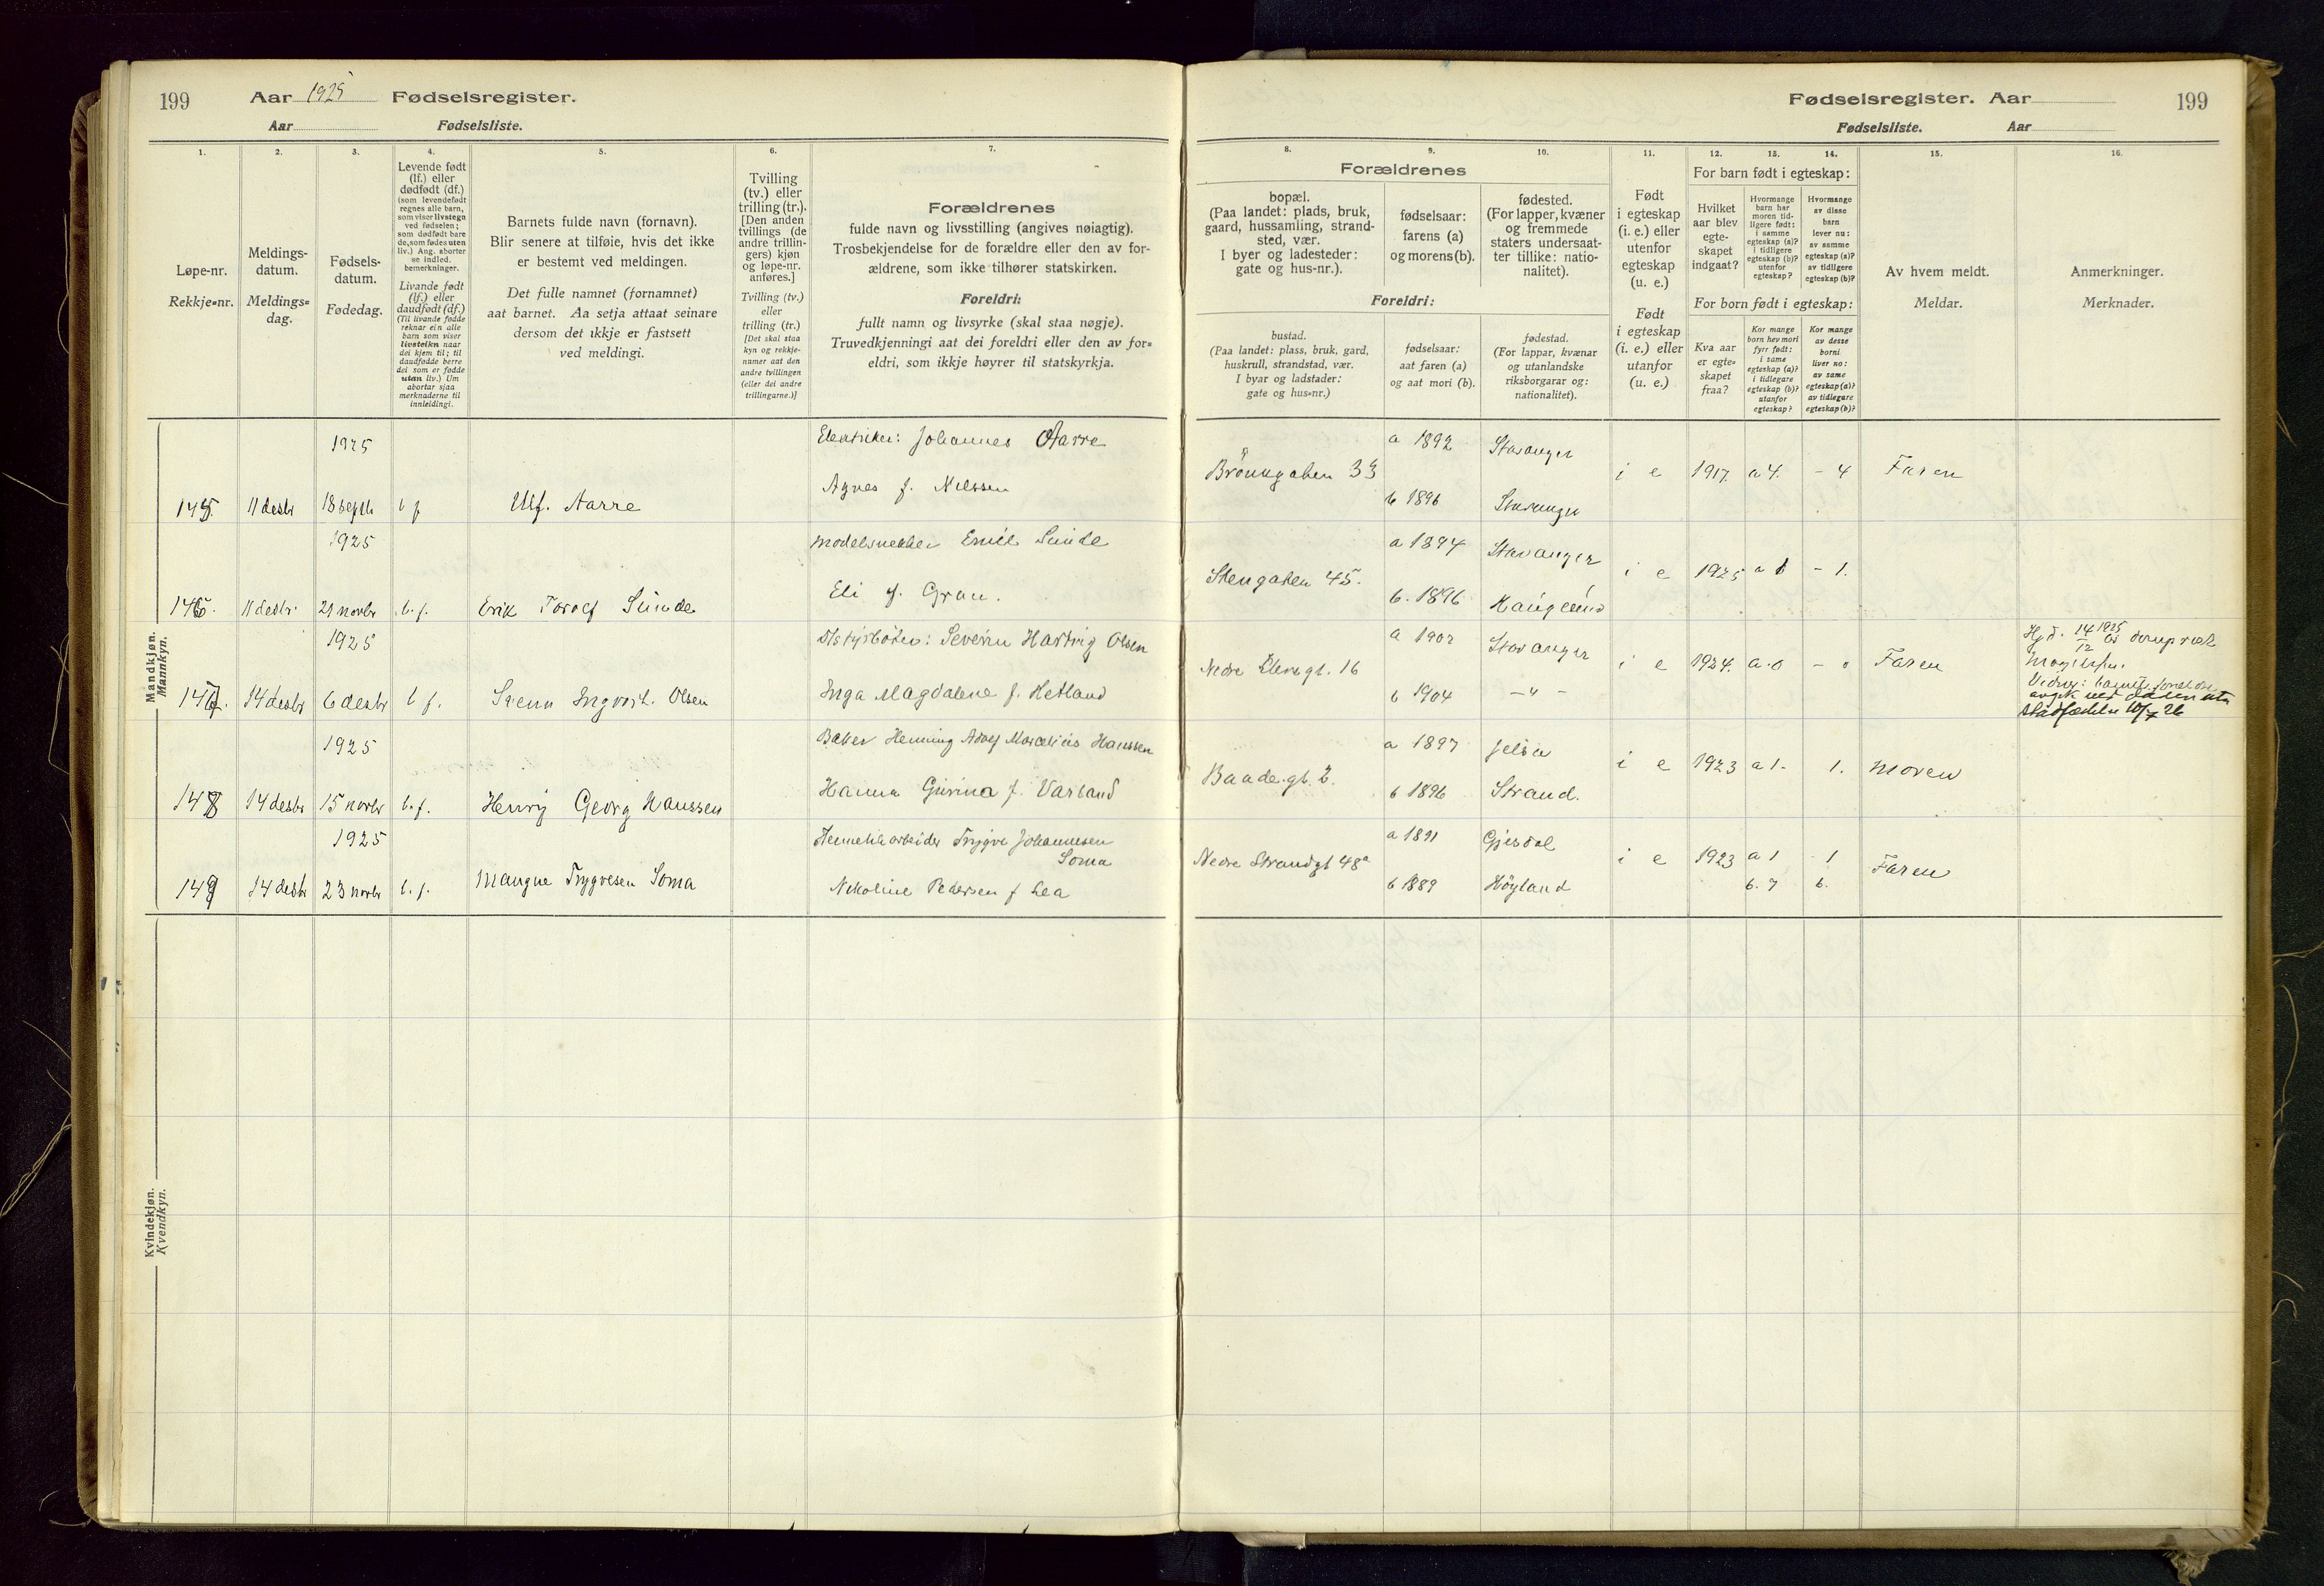 199
Aar 1925 Fødselsregister.
Aar Fødselsliste.
1.
Løpe-nr.
Rekkje=nr.
2.
Meldings-
datum.
Meldings=
dag.
3.
Fødsels-
datum.
Fødedag.
4.
Levende født
(lf.) eller
dødfødt (df.)
(som levendefødt
regnes alle barn,
som viser livstegn
ved fødselen;
som dødfødt bare
de, som fødes uten
liv.) Ang. aborter
se indled.
bemerkninger.
Livande født
(lf.) eller
daudfødt (df.)
(Til livande fødde
reknar ein alle
barn som viser
livsteikn naar
dei kjem til; til
daudfødde berre
dei som er fødde
utan liv.) Um
abortar sjaa
merknaderne til
innleidingi.
5.
Barnets fulde navn (fornavn).
Blir senere at tilføie, hvis det ikke
er bestemt ved meldingen.
Det fulle namnet (fornamnet)
aat barnet. Aa setja attaat seinare
dersom det ikkje er fastsett
ved meldingi.
6.
Tvilling
(tv.) eller
trilling (tr.).
[Den anden
tvillings (de
andre trillin-
gers) kjøn
og løpe-nr.
anføres.]
Tvilling (tv.)
eller
trilling (tr.)
[Det skal staa
kyn og rekkje-
numer aat den
andre tvillingen
(eller dei andre
trillingarne.)]
7.
Forældrenes
fulde navn og livsstilling (angives nøiagtig).
Trosbekjendelse for de forældre eller den av for-
ældrene, som ikke tilhører statskirken.
Foreldri:
fullt namn og livsyrke (skal staa nøgje).
Truvedkjenningi aat dei foreldri eller den av for=
eldri, som ikkje høyrer til statskyrkja.
Fødselsregister. Aar 199
Fødselsliste. Aar
8.
Forældrenes
bopæl.
(Paa landet: plads, bruk,
gaard, hussamling, strand-
sted, vær.
I byer og ladesteder:
gate og hus-nr.).
Foreldri:
bustad.
(Paa landet: plass, bruk, gard,
huskrull, strandstad, vær.
I byar og ladstader:
gate og hus=nr.)
9.
fødselsaar:
farens (a)
og morens (b).
fødselsaar:
aat faren (a)
og aat mori (b).
10.
fødested.
(For lapper, kvæner
og fremmede
staters undersaat-
ter tillike: natio-
nalitet).
fødestad.
(For lappar, kvænar
og utanlandske
riksborgarar og:
nationalitet).
11.
Født
i egteskap
(i. e.) eller
utenfor
egteskap
(u. e.)
Født
i egteskap
(i. e.) eller
utanfor
(u. e.)
12. 13. 14.
For barn født i egteskap:
Hvilket
aar blev
egte-
skapet
indgaat?
Hvormange
barn har
moren tid-
ligere født:
i samme
egteskap (a)?
i tidligere
egteskap (b)?
utenfor
egteskap?
Hvormange
av disse
barn
lever nu:
av samme
egteskap (a)?
av tidligere
egteskap (b)?
For born født i egteskap:
Kva aar
er egte=
skapet
fraa?
Kor mange
born hev mori
fyrr født:
i same
egteskap (a)?
i tidlegare
egteskap (b)?
utanfor
egteskap?
Kor mange
av desse
borni
liver no:
av same
egteskap (a)?
av tidlegare
egteskap (b)?
15.
Av hvem meldt.
Meldar.
16.
Anmerkninger.
Merknader.
Mandkjøn.
Mannkyn.
1925 Johannes Aarre
145. 11 desbr 18 septb l f Ulf. Aarre
Agnes f. Nilssen
33 a 1892 Stavanger i e 1917. a 4. - 4 Faren
b 1896 Stavanger
1925 Modelsnekker Emil Sunde
146. 11 desbr. 21 novbr l. f. Erik Torolf Sunde
Eli f. Gran.
Stengaten 45. a 1894 Stavanger i e 1925 a 1 - 1.
b. 1896 Haugesund
1925 Severin Hartvig Olsen
147. 14 desbr 6 desbr l f. Svenn Ingvart. Olsen
Inga Magdalene f. Hetland
Nedre 16 a 1902 Stavanger i e 1924. a. 0 - 0 Faren
b 1904 - " -
1925 Baker Henning Adolf Marcelius Hanssen
148 14 desbr 15 novbr l. f. Henry Georg Hanssen
Hanna Gurina f. Varland
Baadegt. 2. a 1897 Jelsa i e 1923 a 1. 1. Moren
b 1896 Strand.
1925 Hermetikarbeider Trygve Johannesen
Soma
149 14 desbr 23 novbr l. f. Magne Trygvesen Soma
Nikoline Pedersen f Lea
Nedre Strandgt 48a a 1891 Gjesdal i e 1923 a 1 - 1 Faren
b 1889 Høyland b. 7 b.
Kvindekjøn.
Kvendkyn.